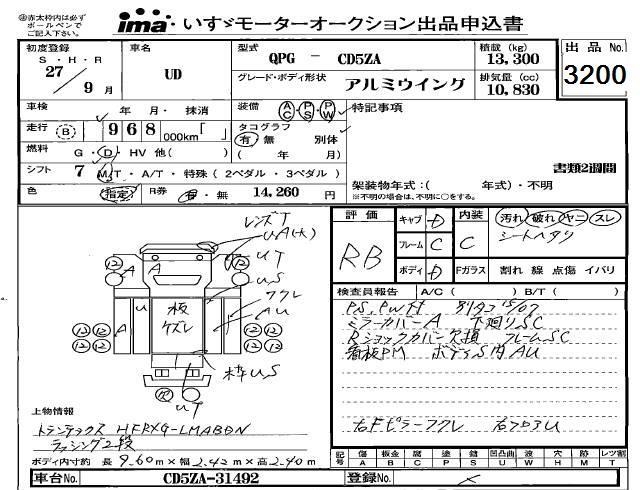 赤太枠内は必ず
ボールペンで
ご記入下さい。
ima いすゞモーターオークション出品申込書
初度登録 車名 型式 QPG - CD5ZA 積載 (kg) 13,300 出品 No. 3200
S・H・R
27 9 月 UD グレード・ボディ形状 アルミウイング 排気量 (cc) 10,830
車検 年 月・抹消 装備 AC・PS・PW 特記事項
走行 (B) 968 000km「 」 タコグラフ
有 無 別体
燃料 G・D・HV 他( ) ( 年 月) 書類2週間
シフト 7 M/T・A/T・特殊 (2ペダル・3ペダル) 架装物年式:( 年式)・不明
※不明の場合は、不明に○をする。
色 (指定) R券 有・無 14,260 円
評価 キャブ D 内装 汚れ 破れ ヤニ スレ
RB フレーム C C シートヘタリ
ボディ D Fガラス 割れ 線 点傷 イバリ
レンズT
UA(大)
UT
US
フクレ
AU
板
ケズレ
A
A
A
U
枠US
UT
検査員報告 A/C ( ) B/T ( )
P.S. P.W付 別タコ 15/07
ミラーカバーA 下廻りSC
Rショックカバー欠損 フレームSC
看板PM ボディS内AU
右Fピラーフクレ
上物情報
トランテックス HFRXG-LMABDN
ラッシング2段
ボディ内寸約 長 9.60m × 幅 2.42m × 高 2.40m
記号 傷 A 板金 B 腐 C 塗 P 錆 S 凹凸曲 U 波 W 穴 H 跡 M レツ割 T
車台No. CD5ZA-31492 登録No.